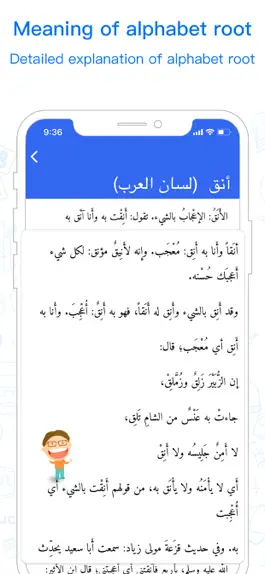 Meaning of alphabet root
Detailed explanation of alphabet root
9:36
أنق (لسان العرب)
الأَنَقُ: الإعْجابُ بالشيء. تقول: أَنِقْت به وأَنا آنَق به
أَنَقاً وأَنا به أَنِق: مُعْجَب. وإنه لأَنِيقٌ مؤنق: لكل شيء
أَعجبَك حُسْنه.
وقد أَنِق بالشيء وأَنِق له أَنَقاً، فهو به أَنِقٌ: أُعْجِبَ. وأَنا به
أَنِق أي مُعْجَب؛ قال:
إن الزُّبَيْرَ زَلِقٌ وزُمَّلِقْ،
جاءتْ به عَنْسٌ من الشامِ تَلِق،
لا أَمِنٌ جَلِيسُه ولا أَنِقْ
أي لا يأْمَنُه ولا يأْنَق به، من قولهم أَنِقْت بالشيء أي
أُعْجِبت
به. وفي حديث قزَعةَ مولى زياد: سمعت أَبا سعيد يحدِّث
الله عليه وسلم، بأَربع فآنقتني أي أَعجبتني؛ قال ابن الأثير: